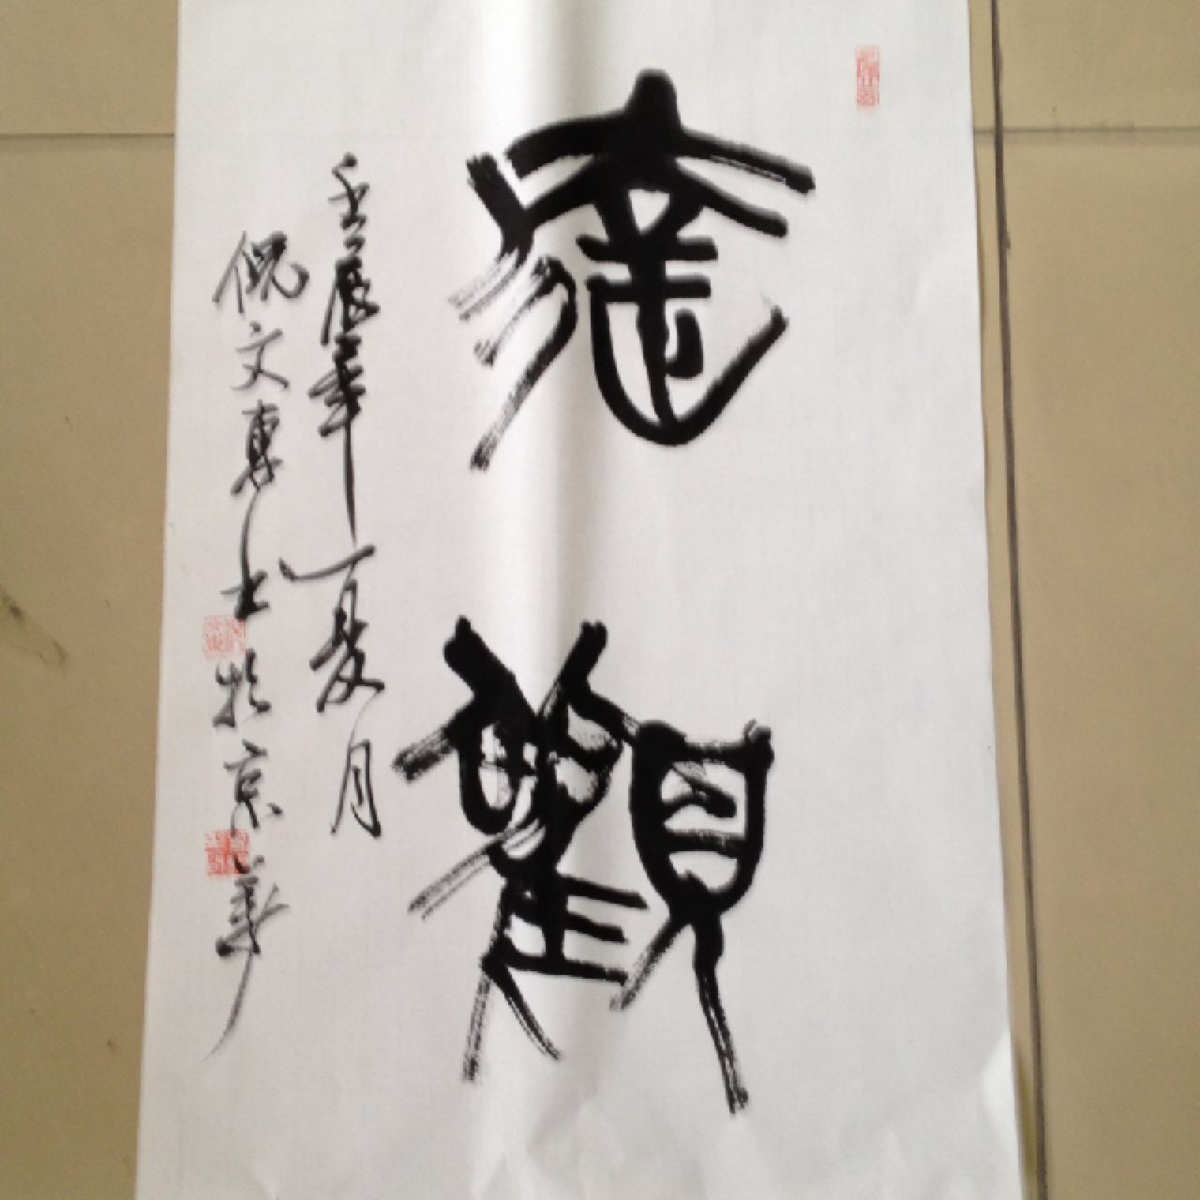 達觀
壬辰年夏月
倪文專書於京華